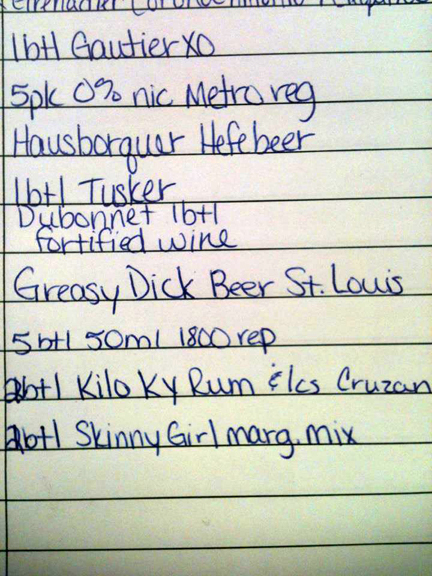 1btl Gautier XO
5pk 0% nic Metro reg
Hausborquer Hefebeer
1btl Tusker
Dubonnet 1btl
fortified wine
Greasy Dick Beer St. Louis
5btl 50ml 1800 rep
2btl Kilo Ky Rum & 1cs Cruzan
2btl Skinny Girl marg. mix